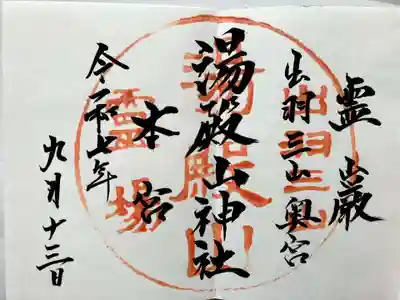 霊巌
出羽三山奥宮
湯殿山神社
本宮
令和七年
九月十三日
出羽三山
湯殿山
霊場